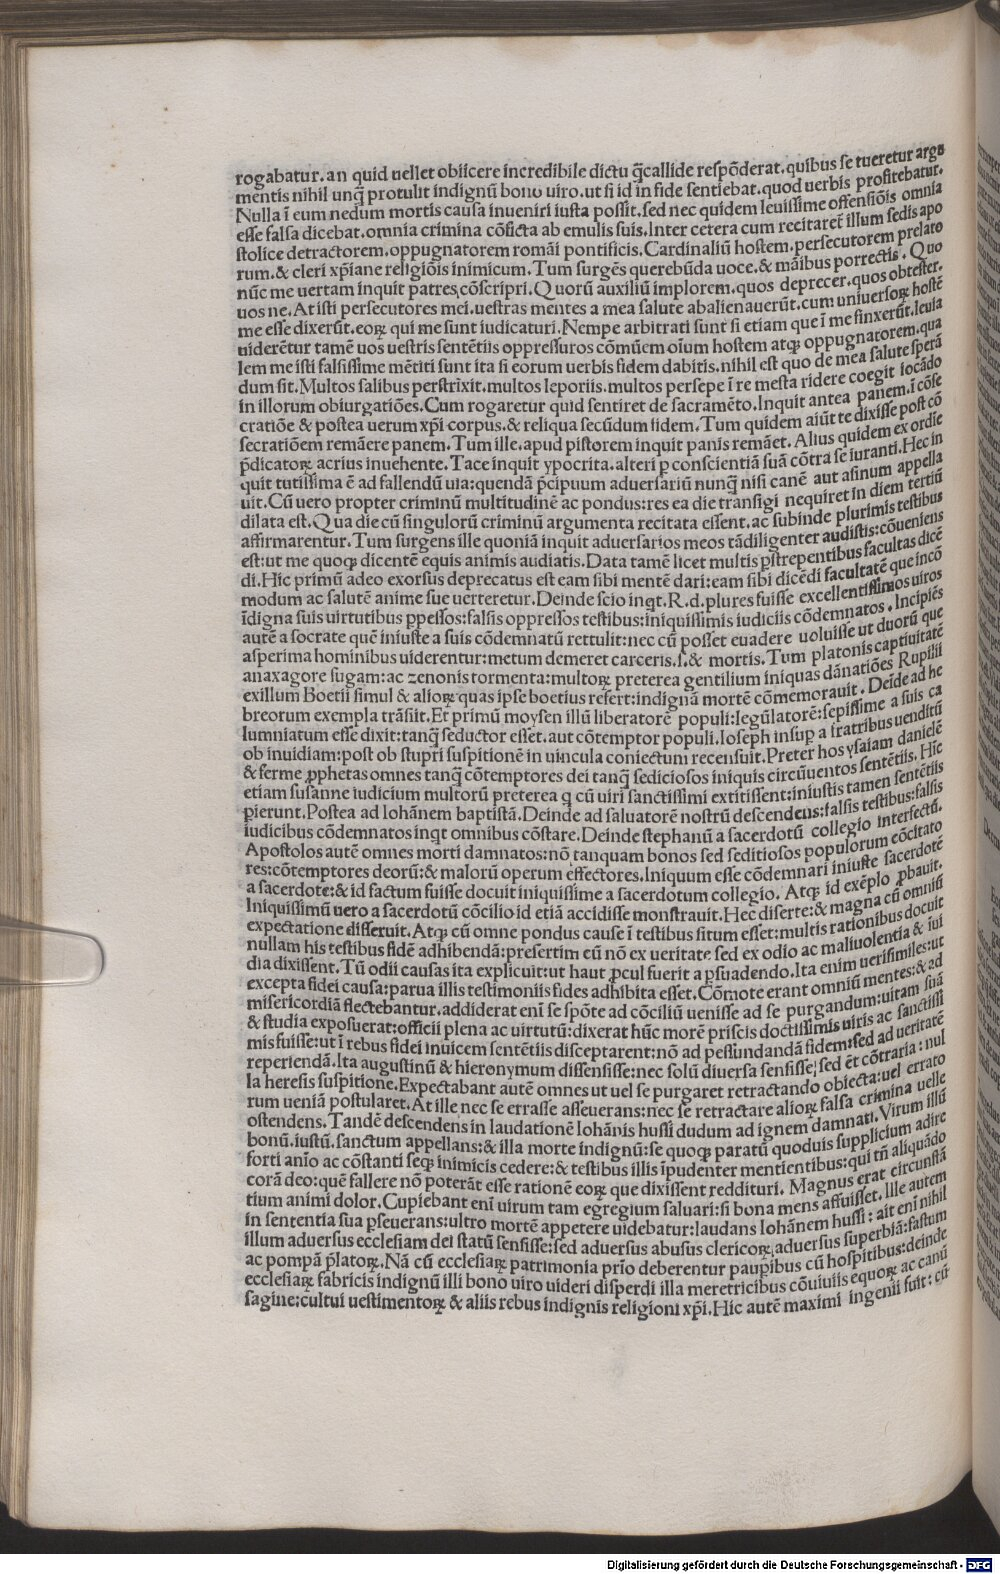 rogabatur. an quid uellet obiicere incredibile dictu q̃callide respõderat. quibus se tueretur argu
mentis nihil unq̃ protulit indignũ bono uiro. ut si id in fide sentiebat. quod uerbis profitebatur.
Nulla ĩ eum nedum mortis causa inueniri iusta possit. sed nec quidem leuissime offensiõis omnia
esse falsa dicebat. omnia crimina cõficta ab emulis suis. Inter cetera cum recitaret̃ illum sedis apo
stolice detractorem. oppugnatorem romãi pontificis. Cardinaliũ hostem. persecutorem prelato
rum. & cleri xp̃iane religiõis inimicum. Tum surgẽs querebũda uoce. & mãibus porrectis. Quo
nũc me uertam inquit patres cõscripri. Quorũ auxiliũ implorem. quos deprecer. quos obtester.
uos ne. At isti persecutores mei. uestras mentes a mea salute abalienauerũt. cum uniuersoꝝ hostẽ
me esse dixerũt. eoꝝ qui me sunt iudicaturi. Nempe arbitrati sunt si etiam que ĩ me finxerũt. leuia
uiderẽtur tamẽ uos uestris sentẽtiis oppressuros cõmũem oĩum hostem atqꝫ oppugnatorem. qua
lem me isti falsissime mẽtiti sunt ita si eorum uerbis fidem dabitis. nihil est quo de mea salute sperã
dum sit. Multos salibus perstrĩxit. multos leporiis. multos persepe ĩ re mesta ridere coegit iocãdo
in illorum obiurgatiões. Cum rogaretur quid sentiret de sacramẽto. Inquit antea panem. ĩ cõse
cratiõe & postea uerum xp̃i corpus. & reliqua secũdum fidem. Tum quidem aiũt te dixisse post cõ
secratiõem remãere panem. Tum ille. apud pistorem inquit panis remãet. Alius quidem ex ordie
p̃dicatoꝝ acrius inuehente. Tace inquit ypocrita. alteri ꝑ conscientiã suã cõtra se iuranti. Hec in
quit tutissima ẽ ad fallendũ uia: quendã p̃cipuum aduersariũ nunq̃ nisi canẽ aut asinum appella
uit. Cũ uero propter criminũ multitudinẽ ac pondus: res ea die transigi nequiret in diem tertiũ
dilata est. Qua die cũ singulorũ criminũ argumenta recitata essent. ac subinde plurimis testibus
affirmarentur. Tum surgens ille quoniã inquit aduersarios meos tãdiligenter audistis: cõueniens
est: ut me quoqꝫ dicentẽ equis animis audiatis. Data tamẽ licet multis p̃strepentibus facultas dicẽ
di. Hic primũ adeo exorsus deprecatus est eam sibi mentẽ dari: eam sibi dicẽdi facultatẽ que incõ
modum ac salutẽ anime sue uerteretur. Deinde scio inqͭ. R. d. plures fuisse excellentissimos uiros
ĩdigna suis uirtutibus ꝑpessos: falsis oppressos testibus: iniquissimis iudiciis cõdemnatos. Incipiẽs
autẽ a socrate quẽ iniuste a suis cõdemnatũ rettulit: nec cũ posset euadere uoluisse ut duorũ que
asperima hominibus uiderentur: metum demeret carceris. s. & mortis. Tum platonis captiuitatẽ
anaxagore fugam: ac zenonis tormenta: multoꝝ preterea gentilium iniquas dãnatiões Rupilii
exillum Boetii simul & alioꝝ quas ipse boetius refert: indignã mortẽ cõmemorauit. Deĩde ad he
breorum exempla trãsiit. Et primũ moysen illũ liberatorẽ populi: legũlatorẽ: sepissime a suis ca
lumniatum esse dixit: tanq̃ seductor esset. aut cõtemptor populi. Ioseph insuꝑ a fratribus uenditũ
ob inuidiam: post ob stupri suspitionẽ in uincula coniectum recensuit. Preter hos ysaiam danielẽ
& ferme ꝓphetas omnes tanq̃ cõtemptores dei tanq̃ sediciosos iniquis circũuentos sentẽtiis. Hic
etiam susanne iudicium multorũ preterea q̃ cũ uiri sanctissimi extitissent: iniustis tamen sentẽtiis
ꝑierunt. Postea ad Iohãnem baptistã. Deinde ad saluatorẽ nostrũ descendens: falsis testibus: falsis
iudicibus cõdemnatos inqͭ omnibus cõstare. Deinde stephanũ a sacerdotũ collegio interfectũ.
Apostolos autẽ omnes morti damnatos: nõ tanquam bonos sed seditiosos populorum cõcitato
res: cõtemptores deorũ: & malorũ operum effectores. Iniquum esse cõdemnari iniuste sacerdotẽ
a sacerdote: & id factum fuisse docuit iniquissime a sacerdotum collegio. Atqꝫ id exẽplo ꝓbauit.
Iniquissimũ uero a sacerdotũ cõcilio id etiã accidisse monstrauit. Hec diserte: & magna cũ omniũ
expectatione disseruit. Atqꝫ cũ omne pondus cause ĩ testibus situm esset: multis rationibus docuit
nullam his testibus fidẽ adhibendã: presertim cũ nõ ex ueritate sed ex odio ac maliuolentia & iui
dia dixissent. Tũ odii causas ita explicuit: ut haut ꝓcul fuerit a ꝑsuadendo. Ita enim uerisimiles: ut
excepta fidei causa: parua illis testimoniis fides adhibita esset. Cõmote erant omniũ mentes: & ad
misericordiã flectebantur. addiderat enĩ se spõte ad cõciliũ uenisse ad se purgandum: uitam suã
& studia exposuerat: officii plena ac uirtutũ: dixerat hũc morẽ priscis doctissimis uiris ac sanctissi
mis fuisse: ut ĩ rebus fidei inuicem sentẽtiis disceptarent: nõ ad pessũndandã fidem: sed ad ueritatẽ
reperiendã. Ita augustinũ & hieronymum dissensisse: nec solũ diuersa sensisse: sed et̃ cõtraria: nul
la heresis suspitione. Expectabant autẽ omnes ut uel se purgaret retractando obiecta: uel errato
rum ueniã postularet. At ille nec se errasse asseuerans: nec se retractare alioꝝ falsa crimina uelle
ostendens. Tandẽ descendens in laudationẽ Iohãnis hussi dudum ad ignem damnati. Virum illũ
bonũ. iustũ. sanctum appellans: & illa morte indignũ: se quoqꝫ paratũ quoduis supplicium adire
forti anĩo ac cõstanti seqꝫ inimicis cedere: & testibus illis ĩpudenter mentientibus: qui tñ aliquãdo
corã deo: quẽ fallere nõ poterãt esse rationẽ eoꝝ que dixissent reddituri. Magnus erat circunstã
tium animi dolor. Cupiebant enĩ uirum tam egregium saluari: si bona mens affuisset. Ille autem
in sententia sua ꝑseuerans: ultro mortẽ appetere uidebatur: laudans Iohãnem hussi: ait enĩ nihil
illum aduersus ecclesiam dei statũ sensisse: sed aduersus abusus clericoꝝ, aduersus superbiã: fastum
ac pompã p̃latoꝝ. Nã cũ ecclesiaꝝ patrimonia prĩo deberentur pauꝑibus cũ hospitibus: deinde
ecclesiaꝝ fabricis indignũ illi bono uiro uideri disperdi illa meretricibus cõuiuiis equoꝝ ac canũ
sagine: cultui uestimentoꝝ & aliis rebus indignis religioni xp̃i. Hic autẽ maximi ingenii fuit: cũ
Digitalisierung gefördert durch die Deutsche Forschungsgemeinschaft - DFG